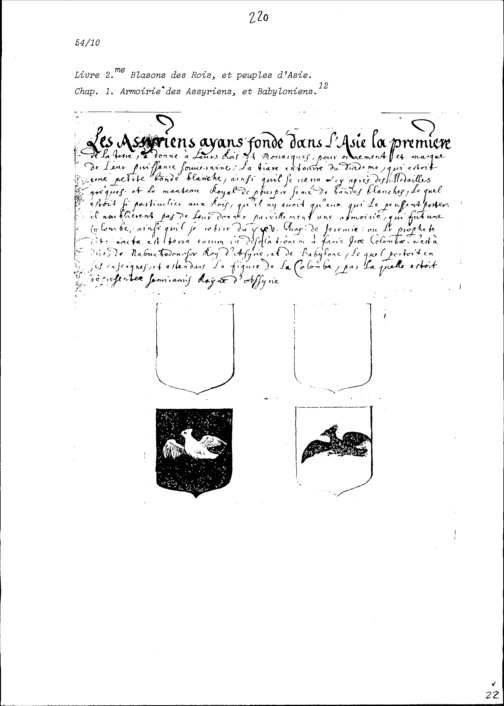 220
54/10
Livre 2.me Blasons des Rois, et peuples d'Asie.
Chap. 1. Armoirie des Assyriens, et Babyloniens.12
Les Assyriens ayans fondé dans l'Asie la premiere
de la terre, a donné à Leurs Rois et Monarques, pour ornement et marque
de Leur puissance souveraine, La tiare entourée du Diademe, qui estoit
une petite bande blanche, ainsi quil se verra icy apres des Medailles
greques et Le manteau Royal de pourpre semé de bandes blanches, Le quel
estoit si particulier aux Rois, qu'il ny avoit qu'eux qui Le peussent porter
il n'oublierent pas de Leur donner pareillement une armoirie, qui fut une
Colombe, ainsi quil se retire du Chap. de Jeremie: ou Le prophete
dit: facta est terra eorum in desolationem à facie iræ Colombæ. c'est à
dire, de Nabuchodonosor Roy d'Assyrie, et de Babylone, Le quel portoit en
ses enseignes, et estendars La figure de La Colombe, par La quelle estoit
representée Semiramis Reyne d'Assyrie
22